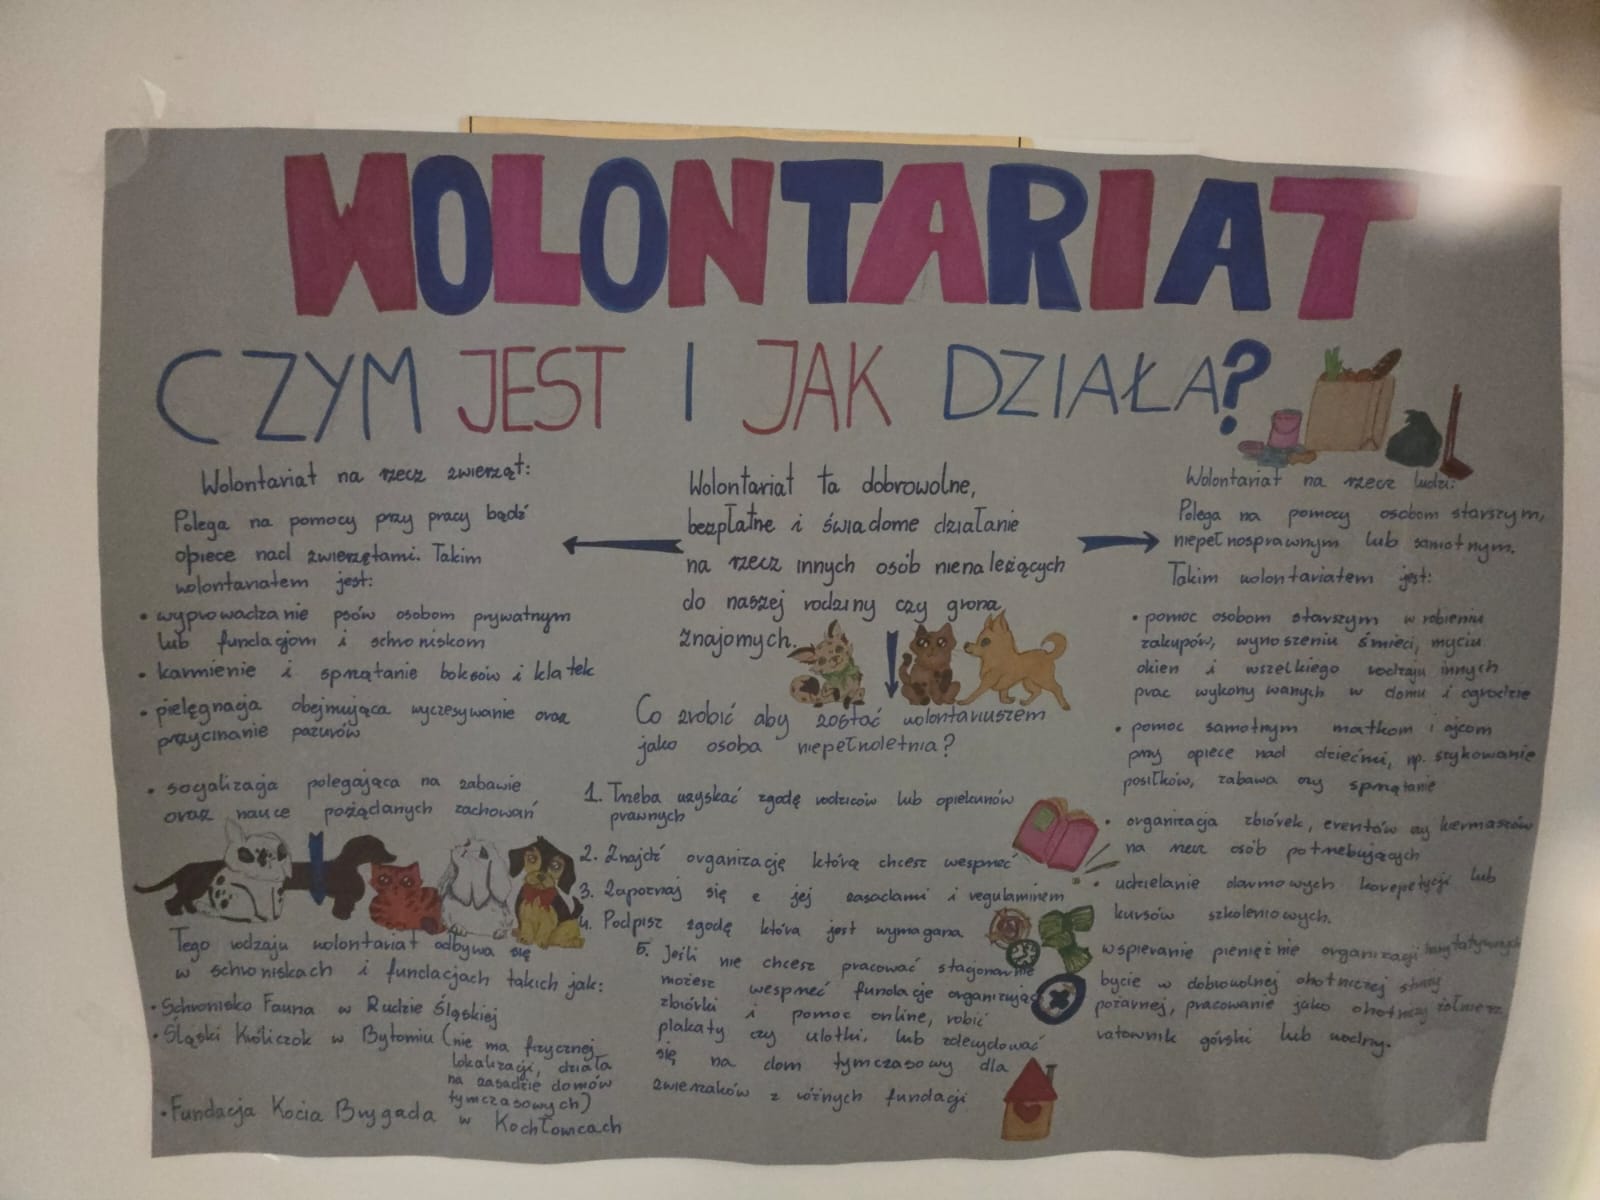 WOLONTARIAT
CZYM JEST I JAK DZIAŁA?
Wolontariat na rzecz zwierząt:
Polega na pomocy przy pracy bądź
opiece nad zwierzętami. Takim
wolontariatem jest:
• wyprowadzanie psów osobom prywatnym
lub fundacjom i schroniskom
• karmienie i sprzątanie boksów i klatek
• pielęgnacja obejmująca wyczesywanie oraz
przycinanie pazurów
• socjalizacja polegająca na zabawie
oraz nauce pożądanych zachowań
Tego rodzaju wolontariat odbywa się
w schroniskach i fundacjach takich jak:
• Schronisko Fauna w Rudzie Śląskiej
• Śląski Króliczok w Bytomiu (nie ma fizycznej
lokalizacji, działa
na zasadzie domów
tymczasowych)
• Fundacja Kocia Brygada w Kochłowicach
Wolontariat to dobrowolne,
bezpłatne i świadome działanie
na rzecz innych osób nienależących
do naszej rodziny czy grona
znajomych.
Co zrobić aby zostać wolontariuszem
jako osoba niepełnoletnia?
1. Trzeba uzyskać zgodę rodziców lub opiekunów
prawnych
2. Znajdź organizację którą chcesz wesprzeć
3. Zapoznaj się z jej zasadami i regulaminem
4. Podpisz zgodę która jest wymagana
5. Jeśli nie chcesz pracować stacjonarnie
możesz wesprzeć fundacje organizując
zbiórki i pomoc online, robić
plakaty czy ulotki, lub zdecydować
się na dom tymczasowy dla
zwierzaków z różnych fundacji
Wolontariat na rzecz ludzi:
Polega na pomocy osobom starszym,
niepełnosprawnym lub samotnym.
Takim wolontariatem jest:
• pomoc osobom starszym w robieniu
zakupów, wynoszeniu śmieci, myciu
okien i wszelkiego rodzaju innych
prac wykonywanych w domu i ogrodzie
• pomoc samotnym matkom i ojcom
przy opiece nad dziećmi, np. szykowanie
posiłków, zabawa czy sprzątanie
• organizacja zbiórek, eventów czy kiermaszów
na rzecz osób potrzebujących
• udzielanie darmowych korepetycji lub
kursów szkoleniowych.
wspieranie pieniężnie organizacji charytatywnych
bycie w dobrowolnej ochotniczej straży
pożarnej, pracowanie jako ochotniczy żołnierz
ratownik górski lub wodny.